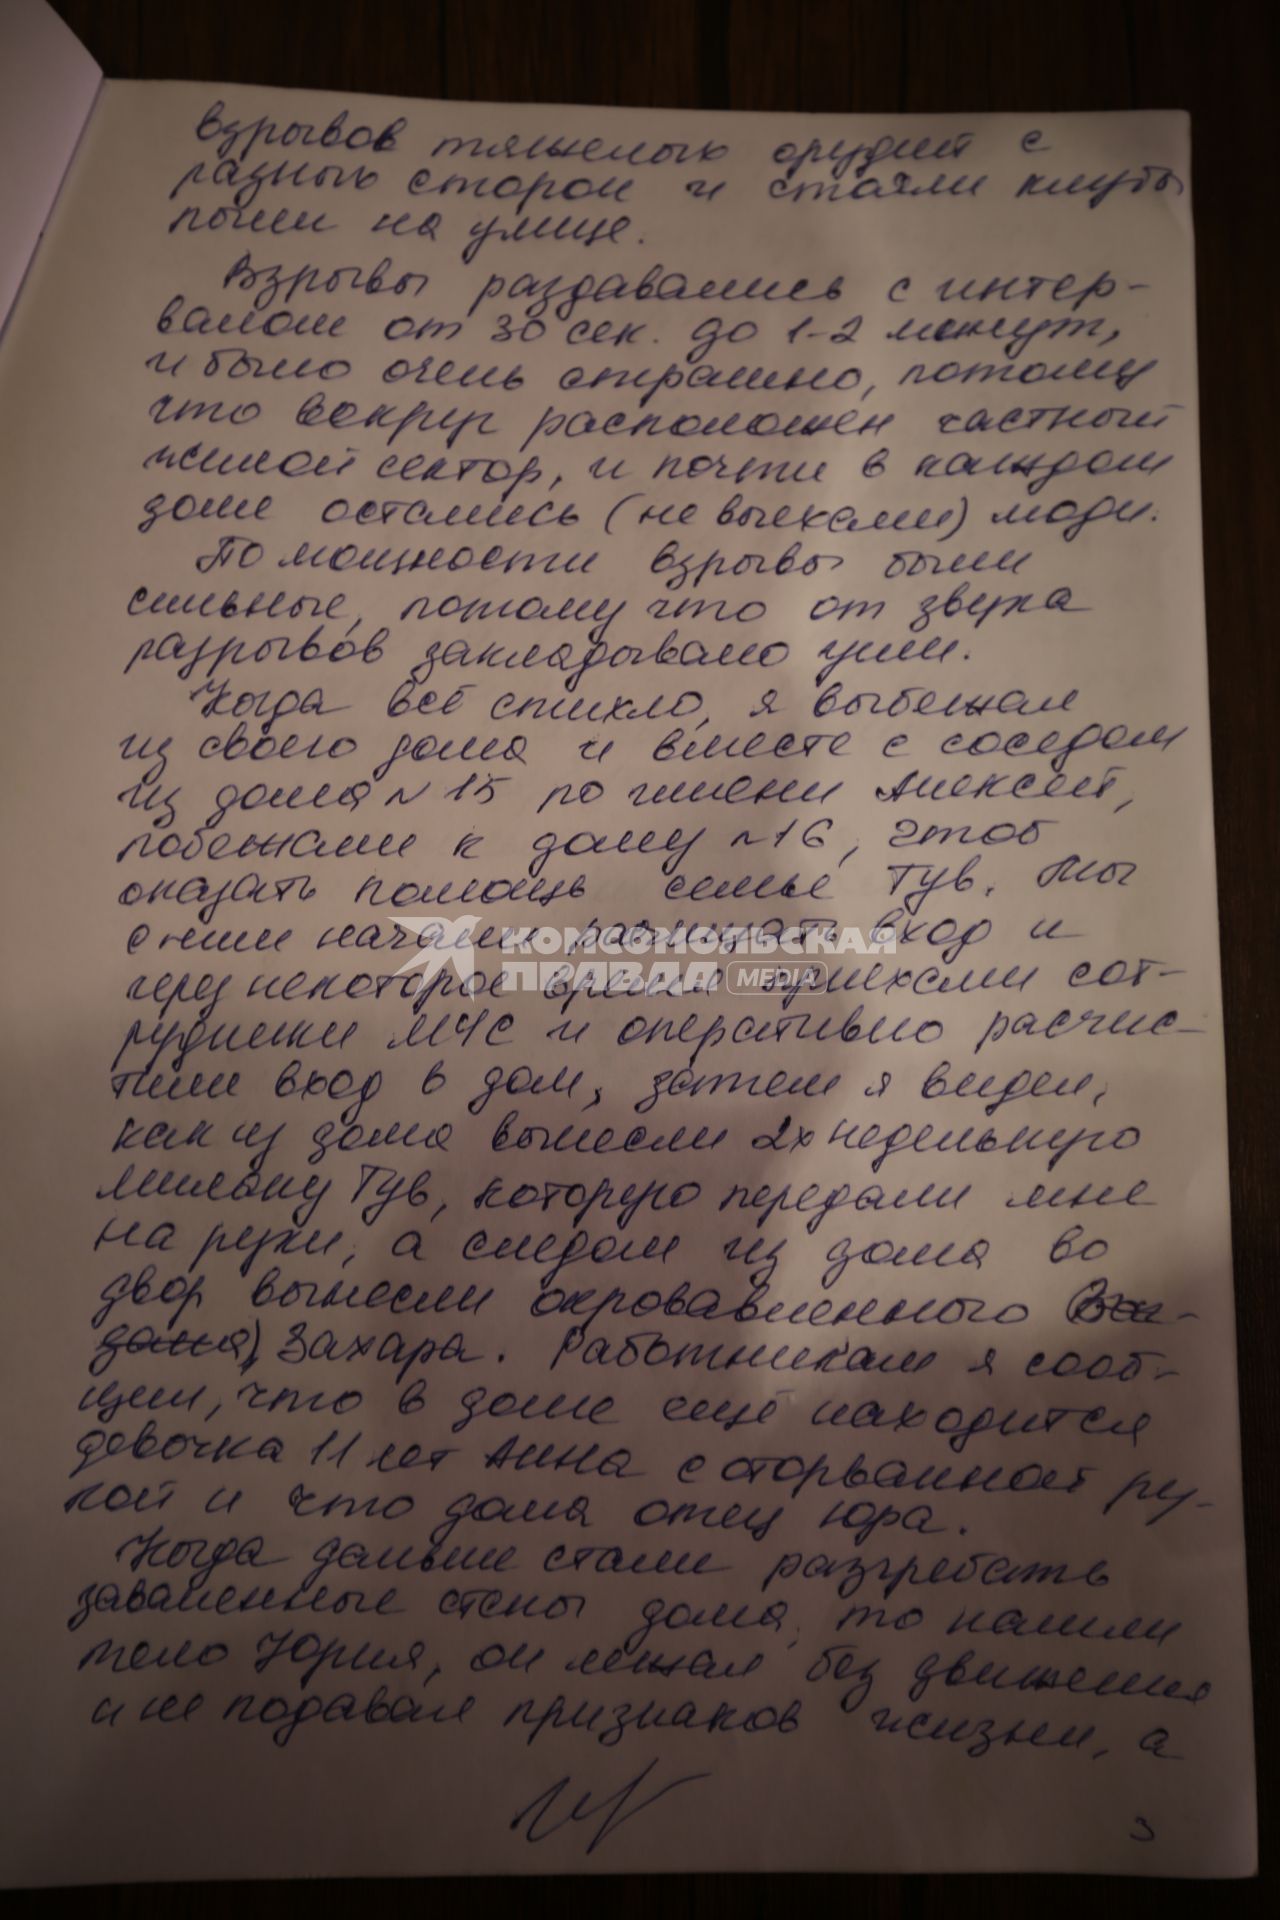 взрывов тяжелых орудий с
разных сторон и стояли клубы
пыли на улице.
Взрывы раздавались с интер-
валом от 30 сек. до 1-2 минут,
и было очень страшно, потому
что вокруг расположен частный
жилой сектор, и почти в каждом
доме остались (не выехали) люди.
По мощности взрывы были
сильные, потому что от звука
разрывов закладывало уши.
Когда всё стихло, я выбежал
из своего дома и вместе с соседом
из дома №15 по имени Алексей,
побежали к дому №16, чтоб
оказать помощь семье Тув. Мы
с ним начали расчищать вход и
КОМСОМОЛЬСКАЯ
ПРАВДА MEDIA
через некоторое время приехали сот-
рудники МЧС и оперативно расчис-
тили вход в дом, затем я видел,
как из дома вынесли 2х недельную
Милану Тув, которую передали мне
на руки, а следом из дома во
двор вынесли окровавленного (Бог-
дана) Захара. Работникам я сооб-
щил, что в доме ещё находится
девочка 11 лет Анна с оторванной ру-
кой и что дома отец Юра.
Когда дальше стали разгребать
заваленные стены дома, то нашли
тело Юрия, он лежал без движения
и не подавал признаков жизни, а
3